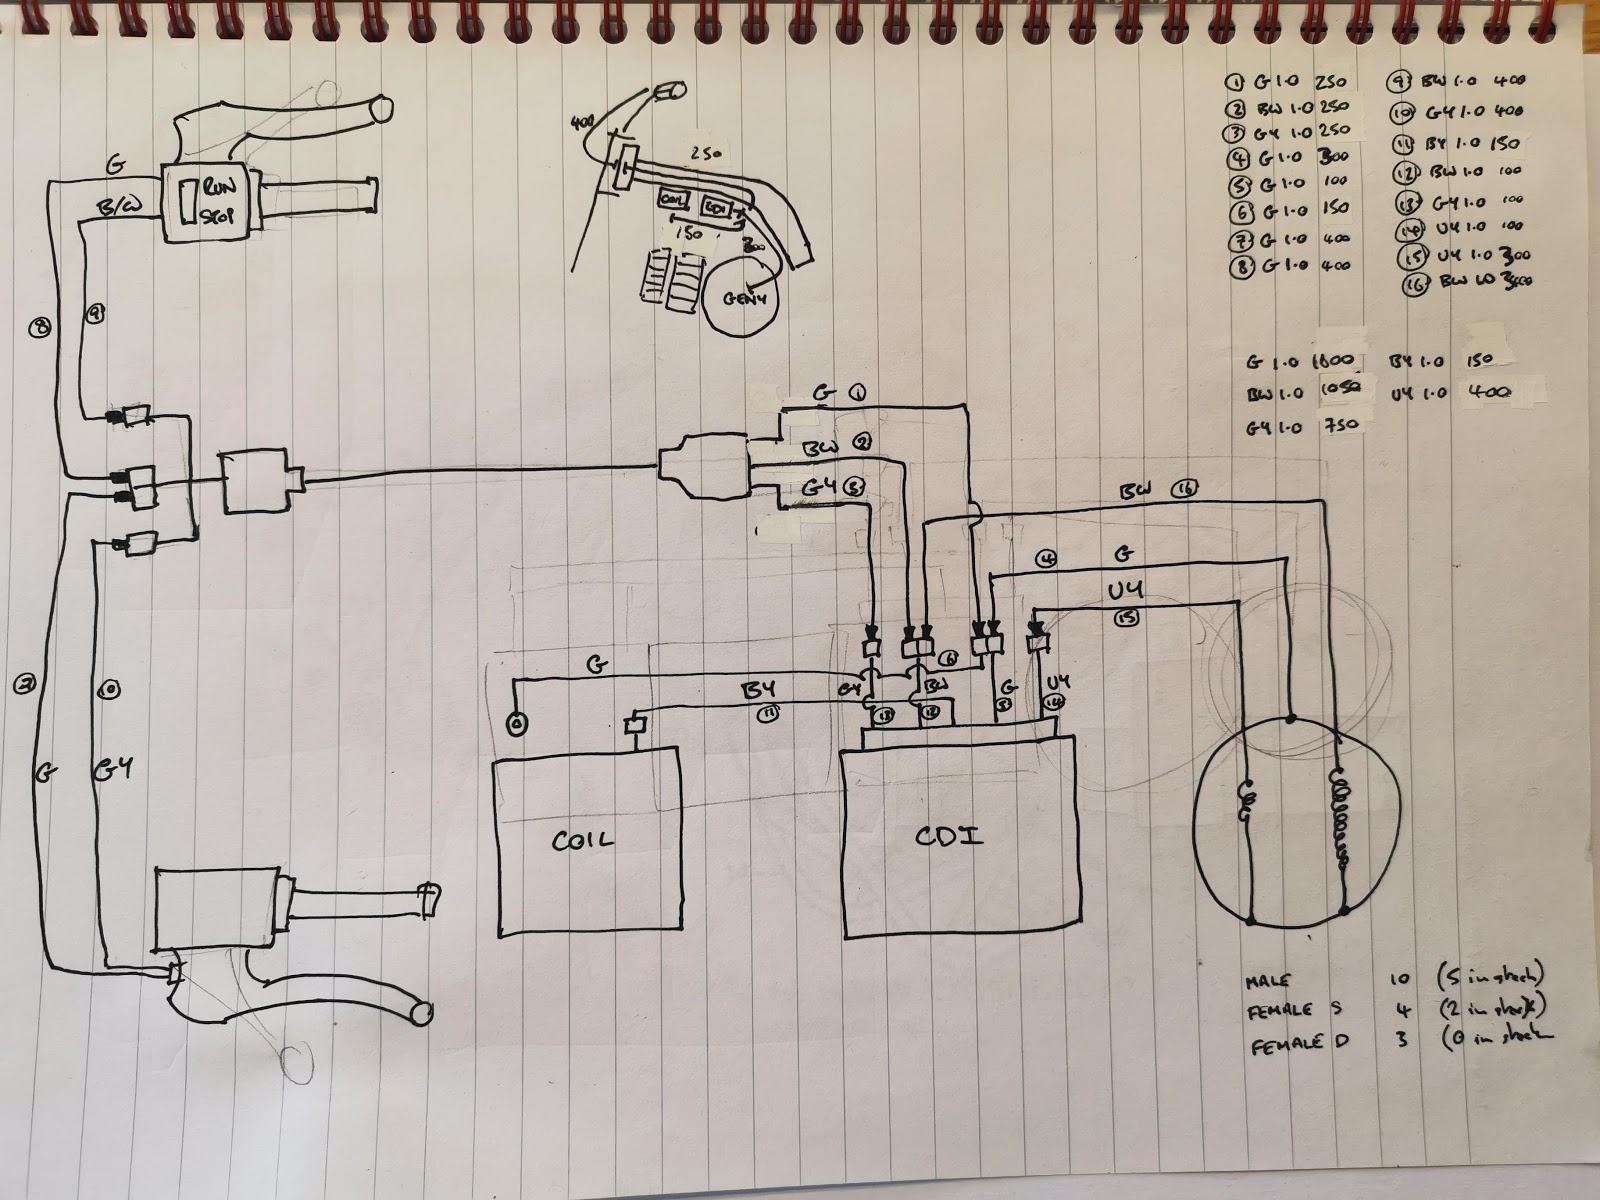 ① G 1.0 250
② BW 1.0 250
③ GY 1.0 250
④ G 1.0 300
⑤ G 1.0 100
⑥ G 1.0 150
⑦ G 1.0 400
⑧ G 1.0 400
⑨ BW 1.0 400
⑩ GY 1.0 400
⑪ BY 1.0 150
⑫ BW 1.0 100
⑬ GY 1.0 100
⑭ UY 1.0 100
⑮ UY 1.0 300
⑯ BW 1.0
G 1.0
BW 1.0 1050
GY 1.0 750
BY 1.0 150
UY 1.0 400
G
B/W
RUN
STOP
⑧
⑨
400
250
COIL
CDI
150
300
GENY
G ①
BW ②
GY ③
BW ⑯
④ G
UY
⑮
G
⑥
BY
⑪
GY
BW
G
UY
⑬
⑫
⑤
⑭
⑦
⑩
G
GY
COIL
CDI
MALE 10 (5 in stock)
FEMALE S 4 (2 in stock)
FEMALE D 3 (0 in stock